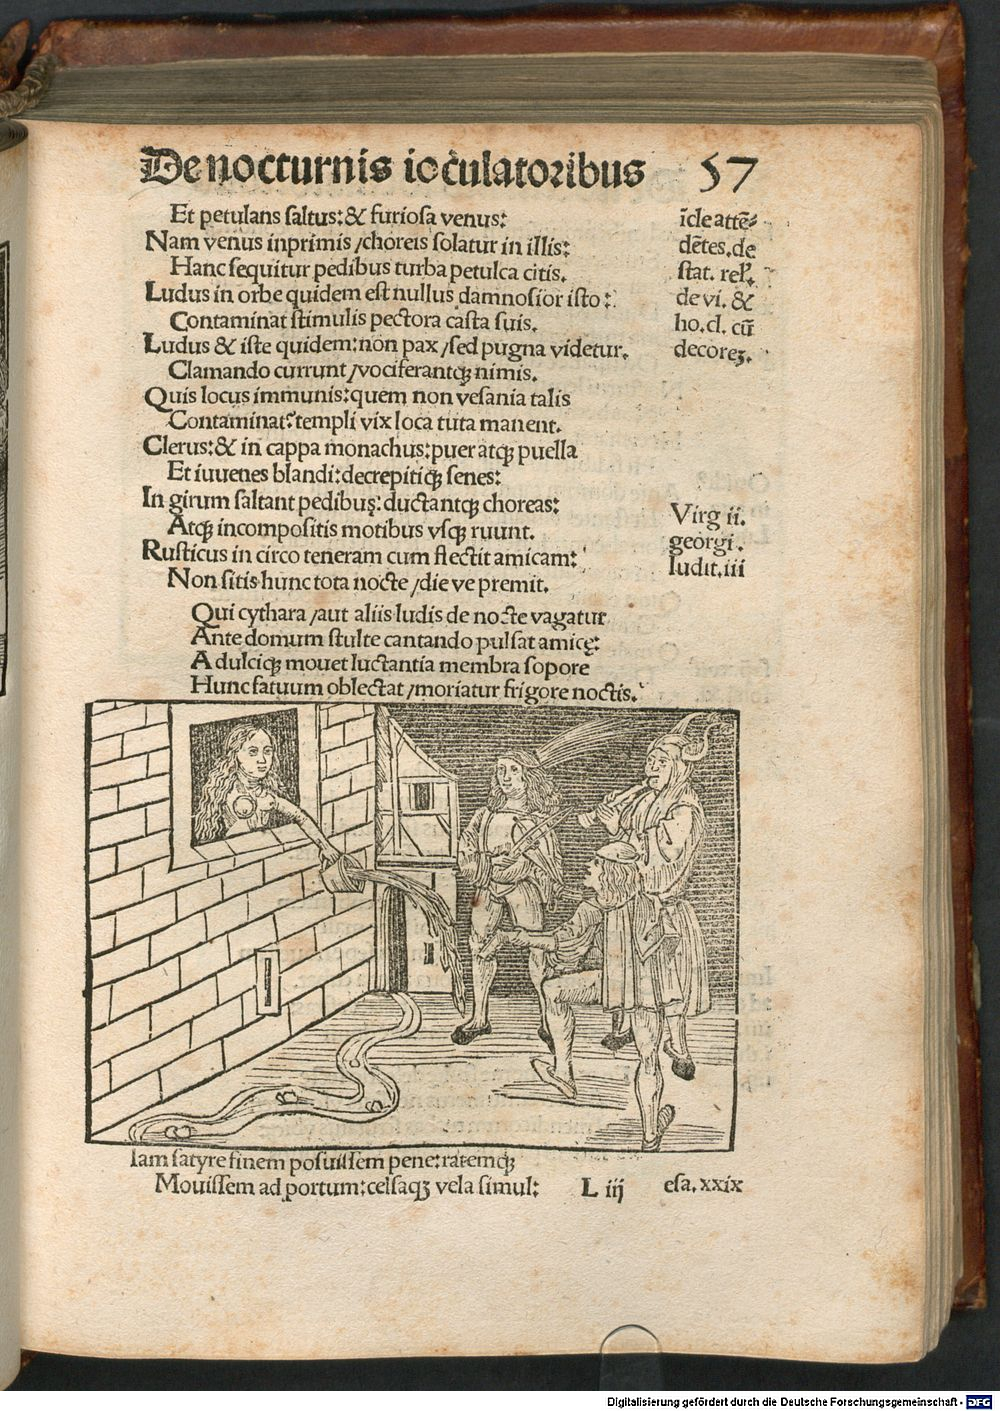 De nocturnis ioculatoribus 57
Et petulans saltus: & furiosa venus:
Nam venus inprimis / choreis solatur in illis:
Hanc sequitur pedibus turba petulca citis.
Ludus in orbe quidem est nullus damnosior isto:
Contaminat stimulis pectora casta suis.
Ludus & iste quidem: non pax / sed pugna videtur.
Clamando currunt / vociferantqꝫ nimis.
Quis locus immunis: quem non vesania talis
Contaminat? templi vix loca tuta manent.
Clerus: & in cappa monachus: puer atqꝫ puella
Et iuvenes blandi: decrepitiqꝫ senes:
In girum saltant pedibus: ductantqꝫ choreas:
Atqꝫ incompositis motibus vsqꝫ ruunt.
Rusticus in circo teneram cum flectit amicam:
Non sitis hunc tota nocte / die ve premit.
īcle attē⸗
dētes. de
stat. rel'.
de vi. &
ho. cl. cū
decoreꝫ.
Virg ii.
georgi.
Iudit. iii
Qui cythara / aut aliis ludis de nocte vagatur
Ante domum stulte cantando pulsat amicę:
A dulciqꝫ mouet luctantia membra sopore
Hunc fatuum oblectat / moriatur frigore noctis.
Iam satyre finem posuissem pene: ratemqꝫ
Mouissem ad portum: celsaqꝫ vela simul: L iij esa. xxix
Digitalisierung gefördert durch die Deutsche Forschungsgemeinschaft - DFG